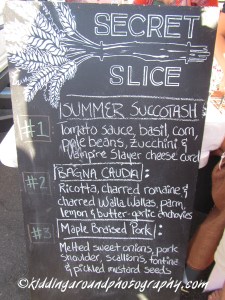 SECRET
SLICE
SUMMER SUCCOTASH:
#1: Tomato sauce, basil, corn,
pole beans, zucchini &
Vampire Slayer cheese curd
BAGNA CAUDA:
#2: Ricotta, charred romaine &
charred Walla Wallas, parm,
lemon & butter-garlic anchovies
#3 Maple Braised Pork:
Melted sweet onions, pork
shoulder, scallions, fontina
& pickled mustard seeds
©kiddingaroundphotography.com